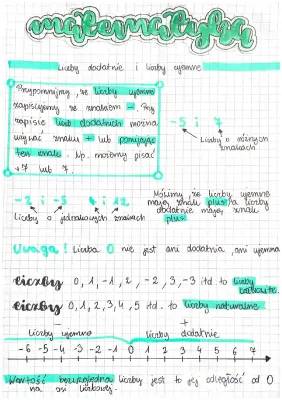 matematyka
Liczby dodatnie i liczby ujemne
Przypomnijmy, że liczby ujemne
zapisujemy ze znakiem -. Przy
zapisie liczb dodatnich można
używać znaku + lub pomijając
ten znak. Np. możemy pisać
+7 lub 7.
-5 i 7
Liczby o różnych
znakach
-2 i -5 4 i 12
Liczby o jednakowych znakach
Mówimy, że liczby ujemne
mają znaku plus, a liczby
dodatnie mają znak
plus.
Uwaga! Liczba 0 nie jest ani dodatnia, ani ujemna
Liczby 0, 1, -1, 2, -2, 3, -3 itd. to liczby
całkowite.
Liczby 0, 1, 2, 3, 4, 5 itd. to liczby naturalne
- +
Liczby ujemne Liczby dodatnie
-6 -5 -4 -3 -2 -1 0 1 2 3 4 5 6 7
Wartość bezwzględna liczby jest to jej odległość od 0
na osi liczbowej.